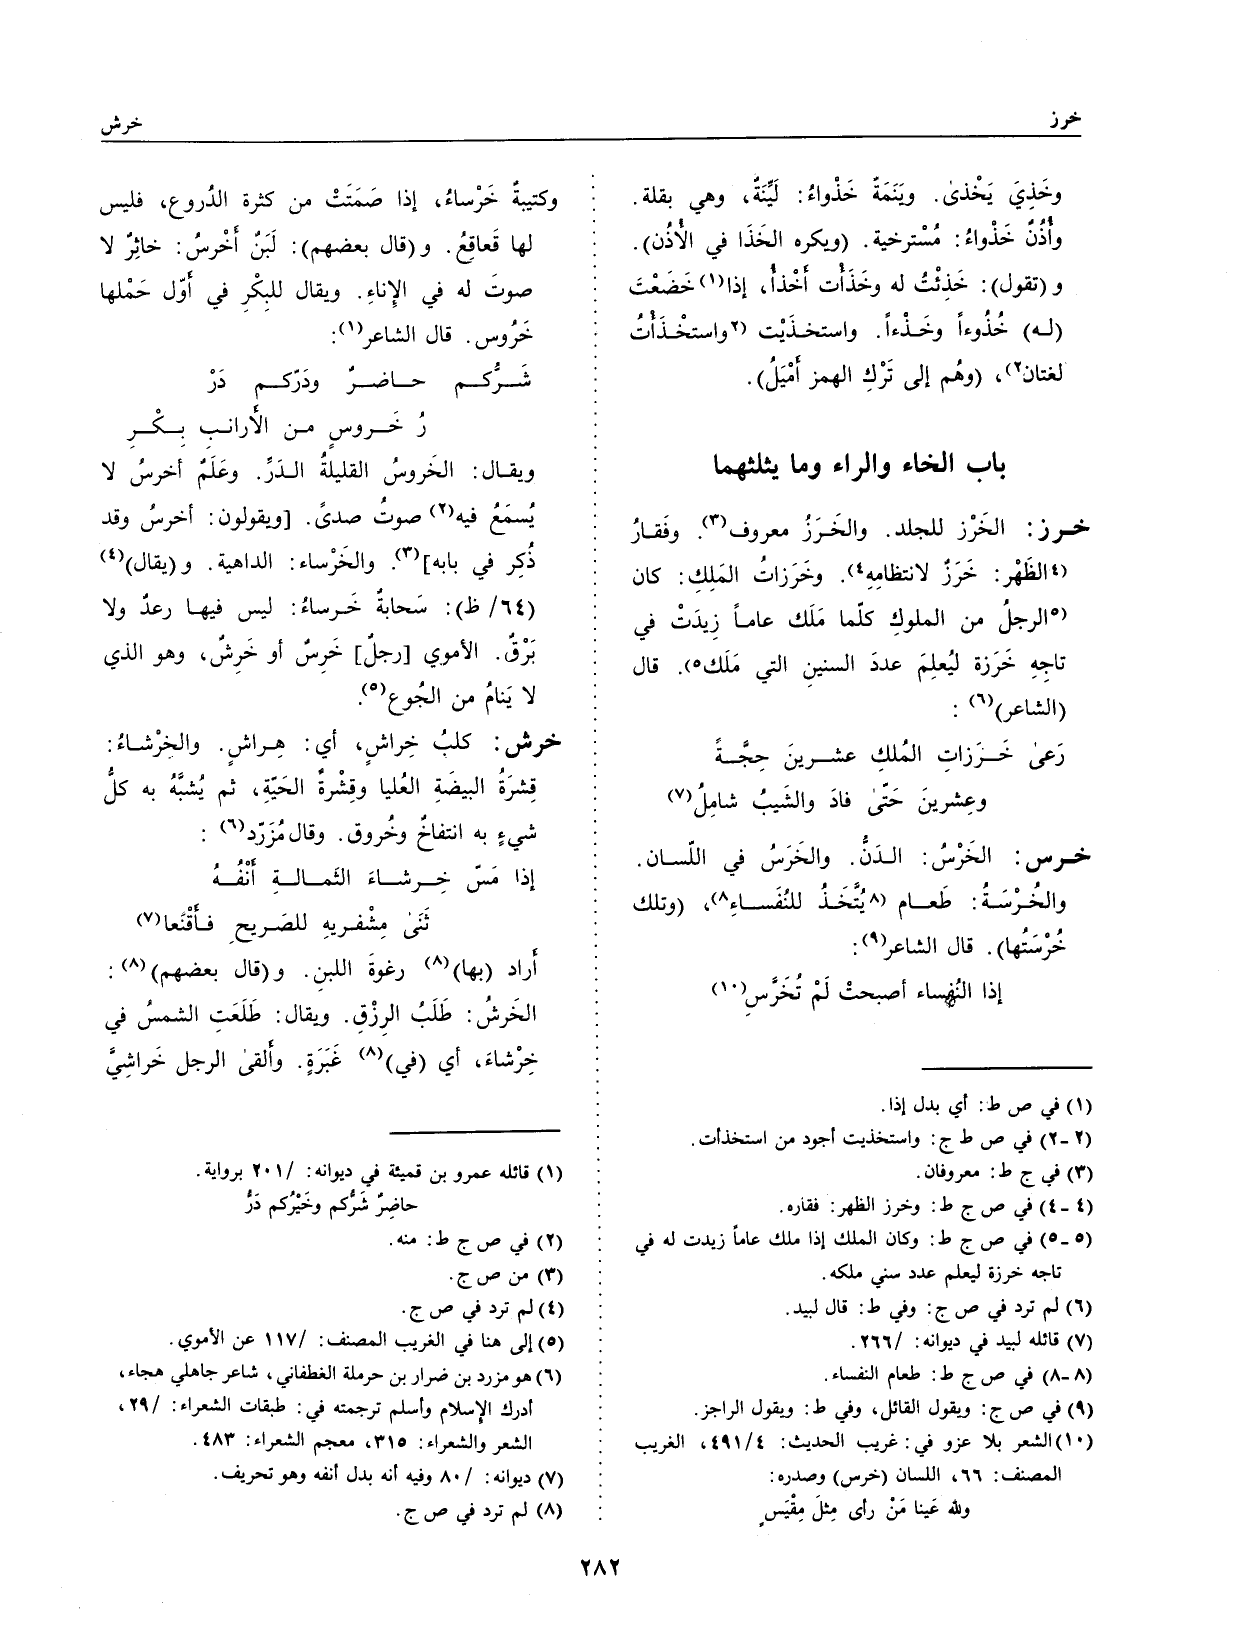 خرز
خرش
وخَذِيَ يَخْذىٰ. ويَنَمَةٌ خَذْواءُ: لَيِّنَةٌ، وهي بقلة.
وأُذُنٌ خَذْواءُ: مُسْترخية. (ويكره الخَذَا في الأُذُن).
و (تقول): خَذِئْتُ له وخَذَأْت أَخْذأُ، إذا(١) خَضَعْتَ
(له) خُذُوءاً وخَذْءاً. واستخذَيْت (٢واستخْذَأْتُ
لغتان٢)، (وهُم إلى تَرْكِ الهمز أَمْيَلُ).
باب الخاء والراء وما يثلثهما
خرز: الخَرْز للجلد. والخَرَزُ معروف(٣). وفَقارُ
(٤الظَهْر: خَرَزٌ لانتظامِهِ٤). وخَرَزاتُ المَلِكِ: كان
(٥الرجلُ من الملوكِ كلّما مَلَك عاماً زِيدَتْ في
تاجِهِ خَرَزة ليُعلِمَ عددَ السنين التي مَلَك٥). قال
(الشاعر)(٦) :
رَعىٰ خَرَزاتِ المُلكِ عشرينَ حِجَّةً
وعِشرينَ حَتّىٰ فادَ والشَيبُ شامِلُ(٧)
خرس: الخَرْسُ: الدَنُّ. والخَرَسُ في اللّسان.
والخُرْسَةُ: طَعام (٨يُتَّخَذُ للنُفَساءِ٨)، (وتلك
خُرْسَتُها). قال الشاعر(٩):
إذا النُفَساء أصبحتْ لَمْ تُخَرَّسِ(١٠)
(١) في ص ط: أي بدل إذا.
(٢-٢) في ص ط ج: واستخذيت أجود من استخذأت.
(٣) في ج ط: معروفان.
(٤-٤) في ص ج ط: وخرز الظهر: فقاره.
(٥-٥) في ص ج ط: وكان الملك إذا ملك عاماً زيدت له في
تاجه خرزة ليعلم عدد سني ملكه.
(٦) لم ترد في ص ج: وفي ط: قال لبيد.
(٧) قائله لبيد في ديوانه: /٢٦٦.
(٨-٨) في ص ج ط: طعام النفساء.
(٩) في ص ج: ويقول القائل، وفي ط: ويقول الراجز.
(١٠) الشعر بلا عزو في: غريب الحديث: ٤٩١/٤، الغريب
المصنف: ٦٦، اللسان (خرس) وصدره:
ولله عَينا مَنْ رأى مِثلَ مِقْيَسٍ
وكتيبةٌ خَرْساءُ، إذا صَمَتَتْ من كثرة الدُروع، فليس
لها قَعاقِعُ. و(قال بعضهم): لَبَنٌ أَخْرسُ: خاثِرٌ لا
صوتَ له في الإِناءِ. ويقال للبِكْرِ في أَوّل حَمْلها
خَرُوس. قال الشاعر(١):
شَرُّكم حاضرٌ ودَرّكم دَرْ
رُ خَروسٍ من الأَرانبِ بِكْرِ
ويقال: الخَروسُ القليلةُ الدَرِّ. وعَلَمٌ أخرسُ لا
يُسمَعُ فيه(٢) صوتُ صدىً. [ويقولون: أخرسُ وقد
ذُكِر في بابه](٣). والخَرْساء: الداهية. و (يقال)(٤)
(٦٤/ ظ): سَحابةٌ خَرساءُ: ليس فيها رعدٌ ولا
بَرْقٌ. الأموي [رجلٌ] خَرِسٌ أو خَرِشٌ، وهو الذي
لا يَنامُ من الجُوع(٥).
خرش: كلبُ خِراشٍ، أي: هِراشٍ. والخِرْشاءُ:
قِشرَةُ البيضَةِ العُليا وقِشْرةٌ الحَيّةِ، ثم يُشبَّهُ به كلُّ
شيءٍ به انتفاخٌ وخُروق. وقال مُزَرّد(٦) :
إذا مَسّ خِرشاءَ الثُمالةِ أَنْفُهُ
ثَنىٰ مِشْفريهِ للصَريحِ فأَقْنَعا(٧)
أراد (بها)(٨) رغوةَ اللبن. و(قال بعضهم)(٨):
الخَرشُ: طَلَبُ الرِزْقِ. ويقال: طَلَعَتِ الشمسُ في
خِرْشاءَ، أي (في)(٨) غَبَرَةٍ. وألقىٰ الرجل خَراشِيَّ
(١) قائله عمرو بن قميئة في ديوانه: /٢٠١ برواية.
حاضِرٌ شَرُّكم وخَيْرُكم دَرُّ
(٢) في ص ج ط: منه.
(٣) من ص ج.
(٤) لم ترد في ص ج.
(٥) إلى هنا في الغريب المصنف: /١١٧ عن الأموي.
(٦) هو مزرد بن ضرار بن حرملة الغطفاني، شاعر جاهلي هجاء،
أدرك الإسلام وأسلم ترجمته في: طبقات الشعراء: /٢٩،
الشعر والشعراء: ٣١٥، معجم الشعراء: ٤٨٣.
(٧) ديوانه: /٨٠ وفيه أنه بدل أنفه وهو تحريف.
(٨) لم ترد في ص ج.
٢٨٢